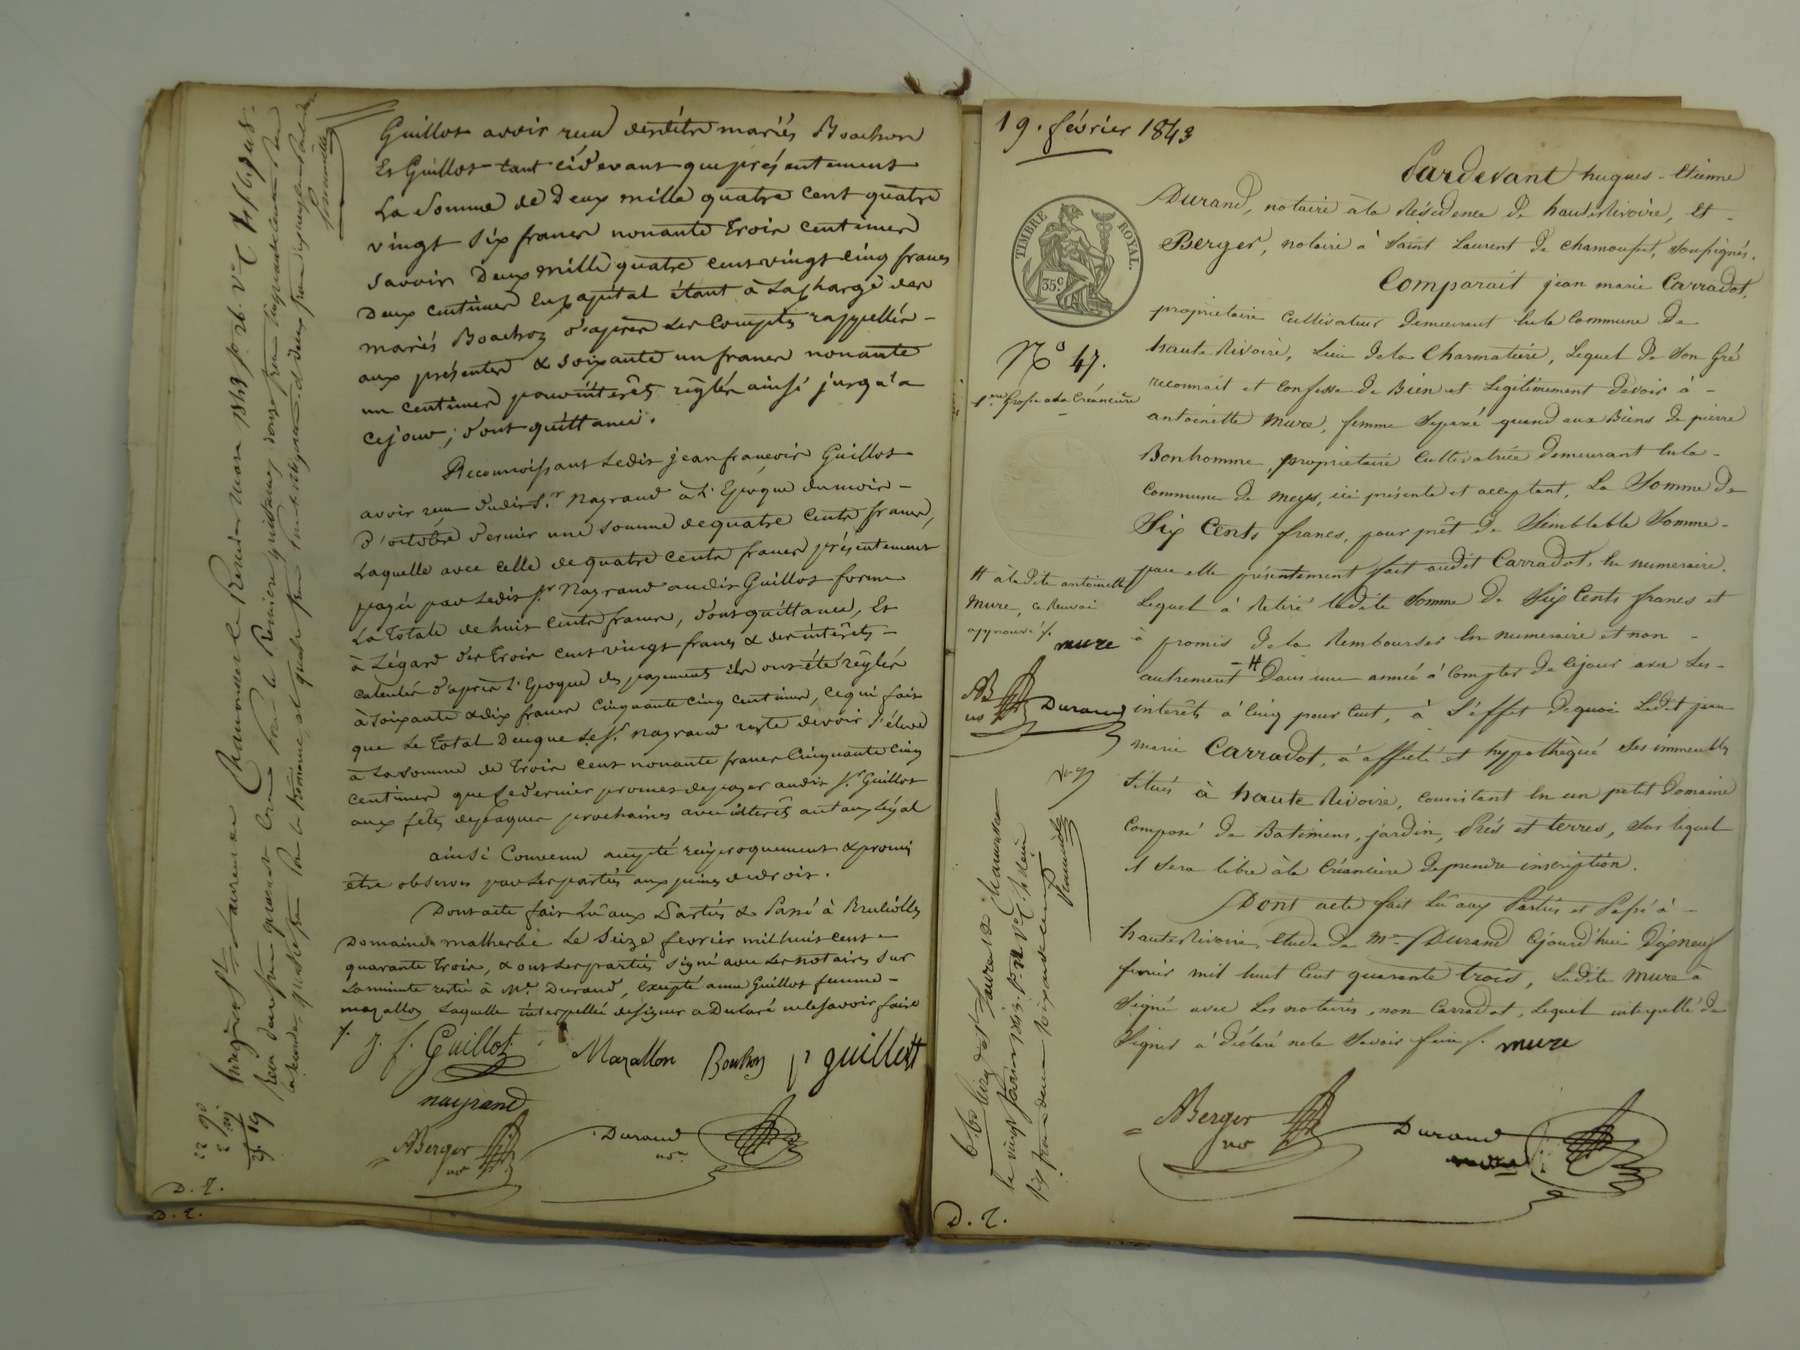 Guillot avoir reçu desdits mariés Boachon
Et Guillot tant cidevant que présentement
La Somme de Deux mille quatre cent quatre
vingt Six francs nonante trois centimes
Savoir Deux mille quatre cent vingt cinq francs
Deux centimes En capital étant à La charge des
mariés Boachon d'après Les Comptes rappellés
aux présentes & Soixante un francs nonante
un centimes pour intérêts réglés ainsi jusqu'à
cejour; dont quittance.
Reconnoissant Ledit jean françois Guillot
avoir reçu dudit Sr. Nayrand à L'Epoque du mois
d'octobre dernier une Somme de quatre Cents francs,
Laquelle avec celle de quatre cents francs présentement
payée par Ledit Sr Nayrand audit Guillot forme
La totale de huit Cents francs, dont quittance, Et
à Légard des Trois cent vingt francs & des intérêts
calculés d'après L'Epoque des payements ils ont été réglés
à Soixante & dix francs Cinquante cinq centimes, ce qui fait
que Le Total Deuque Le Sr. Nayrand reste devoir S'élève
à La Somme de Trois Cent nonante francs Cinquante Cinq
Centimes que Ce dernier promet de payer audit Sr. Guillot
aux fêtes de paques prochaines avec intérêts au taux légal
ainsi Convenu accepté reciproquement & promis
être observer par Les parties aux peines de droit.
Dont acte fait Lû aux Parties & Passé à Brullioles
Domaine malherbe Le Seize fevrier mil huit cent
quarante trois, & ont Les parties Signé avec Les notaires Sur
La minute restée à Me. Durand, Excepté anne Guillot femme
mazallon Laquelle interpellée de signer a Declaré ne le Savoir faire
J. f. Guillot Mazallon Boachon guillott
nayrand
ABerger Durand
no nore
D. r.
D. r.
19. février 1843
Pardevant hugues-Etienne
Durand, notaire à la Résidence de hauteRivoire, Et
Berger, notaire à Saint Laurent de Chamousset, Soussignés.
TIMBRE ROYAL.
35c
Comparait jean marie Carradot,
propriétaire Cultivateur Demeurant En la Commune de
No 47.
haute Rivoire, Lieu de la Charmatière, Lequel de Son Gré
1ere Grosse à la Créancière
reconnait et Confesse de Bien et Legitimement Devoir à
antoinette Mure, femme Separé quand aux Biens de pierre
Bonhomme, propriétaire Cultivatrice Demeurant En la
Commune de Meys, ici présente et acceptant, La Somme de
Six Cents francs, pour prêt de Semblable Somme
par elle présentement fait audit Carradot, En numeraire,
Lequel à Retiré Ladite Somme de Six Cents francs et
à promis de la Rembourser En numeraire et non
autrement # Dans une année à Compter de Cejour avec Les
# à ladite antoinette
Mure, ce Renvoi
approuvé/. mure
AB no Durand
interêts à Cinq pour Cent, à L'effet de quoi Ledit jean
marie Carradot, à affecté et hypothèqué Ses immeubles
Situés à haute Rivoire, Consistant En un petit Domaine
Composé de Batimens, jardin, Prés et terres, Sur lequel
il Sera libre à la Créancière de prendre inscription.
Dont acte fait Lû aux Parties et Passé à
haute Rivoire, Etude de Me Durand Cejourd'hui Dixneuf
fevrier mil huit Cent quarante trois, Ladite Mure à
Signé avec Les notaires, non Carradot, Lequel interpellé de
Signer à Déclaré ne le Savoir faire/. mure
ABerger Durand
no
D. r.